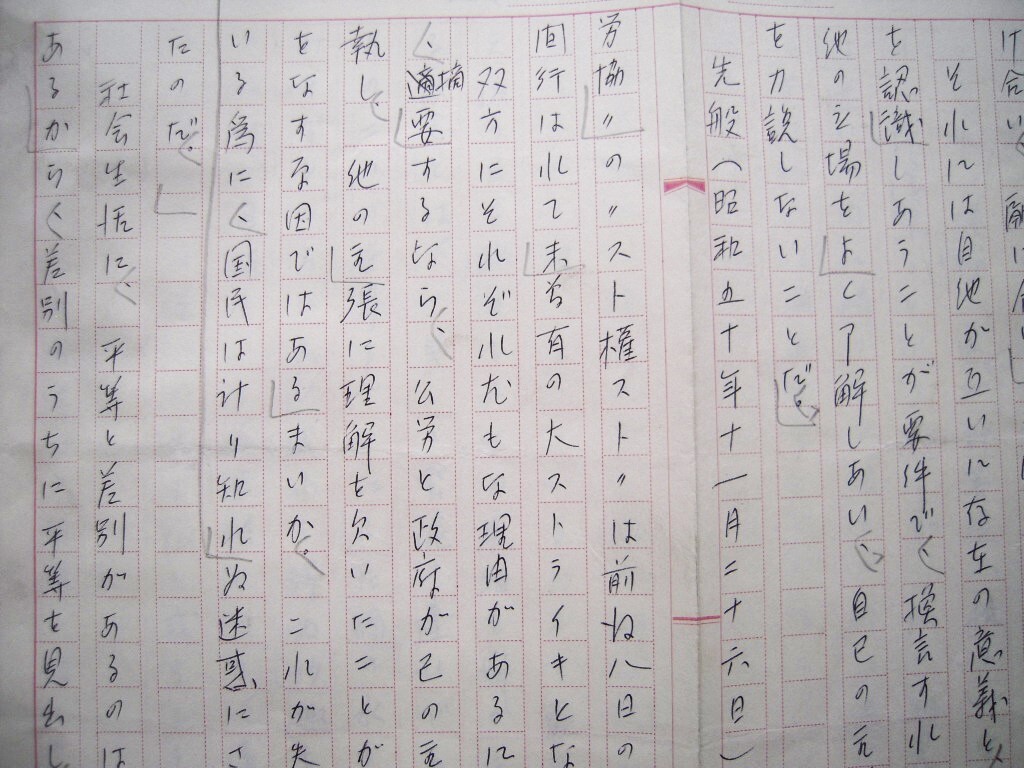 け合い、融け合
それには自他が互いに存在の意義と
を認識しあうことが要件で、換言すれ
他の立場をよく了解しあい、自己の主
を力説しないことだ。
先般(昭和五十年十一月二十六日)
労協〃の〃スト権スト〃は前ね八日の
間行はれて未曽有の大ストライキとな
双方にそれぞれ尤もな理由があるに
、摘要するなら、公労と政府が己の主
執し、他の主張に理解を欠いたことが
をなす原因ではあるまいか。これが失
いる為に、国民は計り知れぬ迷惑にさ
たのだ。
社会生活に、平等と差別があるのは
あるから、差別のうちに平等を見出し